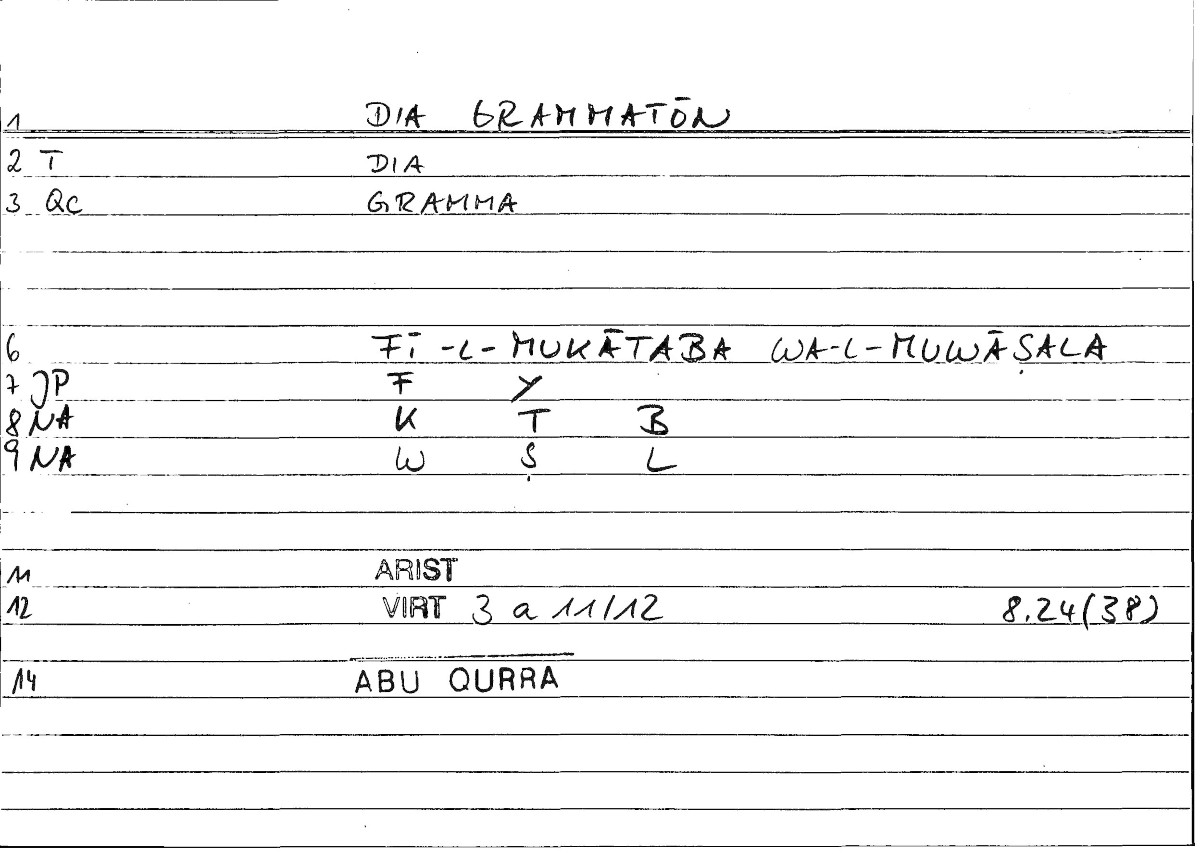 1 DIA GRAMMATŌN
2 T DIA
3 Qc GRAMMA
6 Fī -L- MUKĀTABA WA-L-MUWĀṢALA
7 JP F Y
8 NA K T B
9 NA W Ṣ L
11 ARIST
12 VIRT 3 a 11/12 8.24(38)
14 ABU QURRA